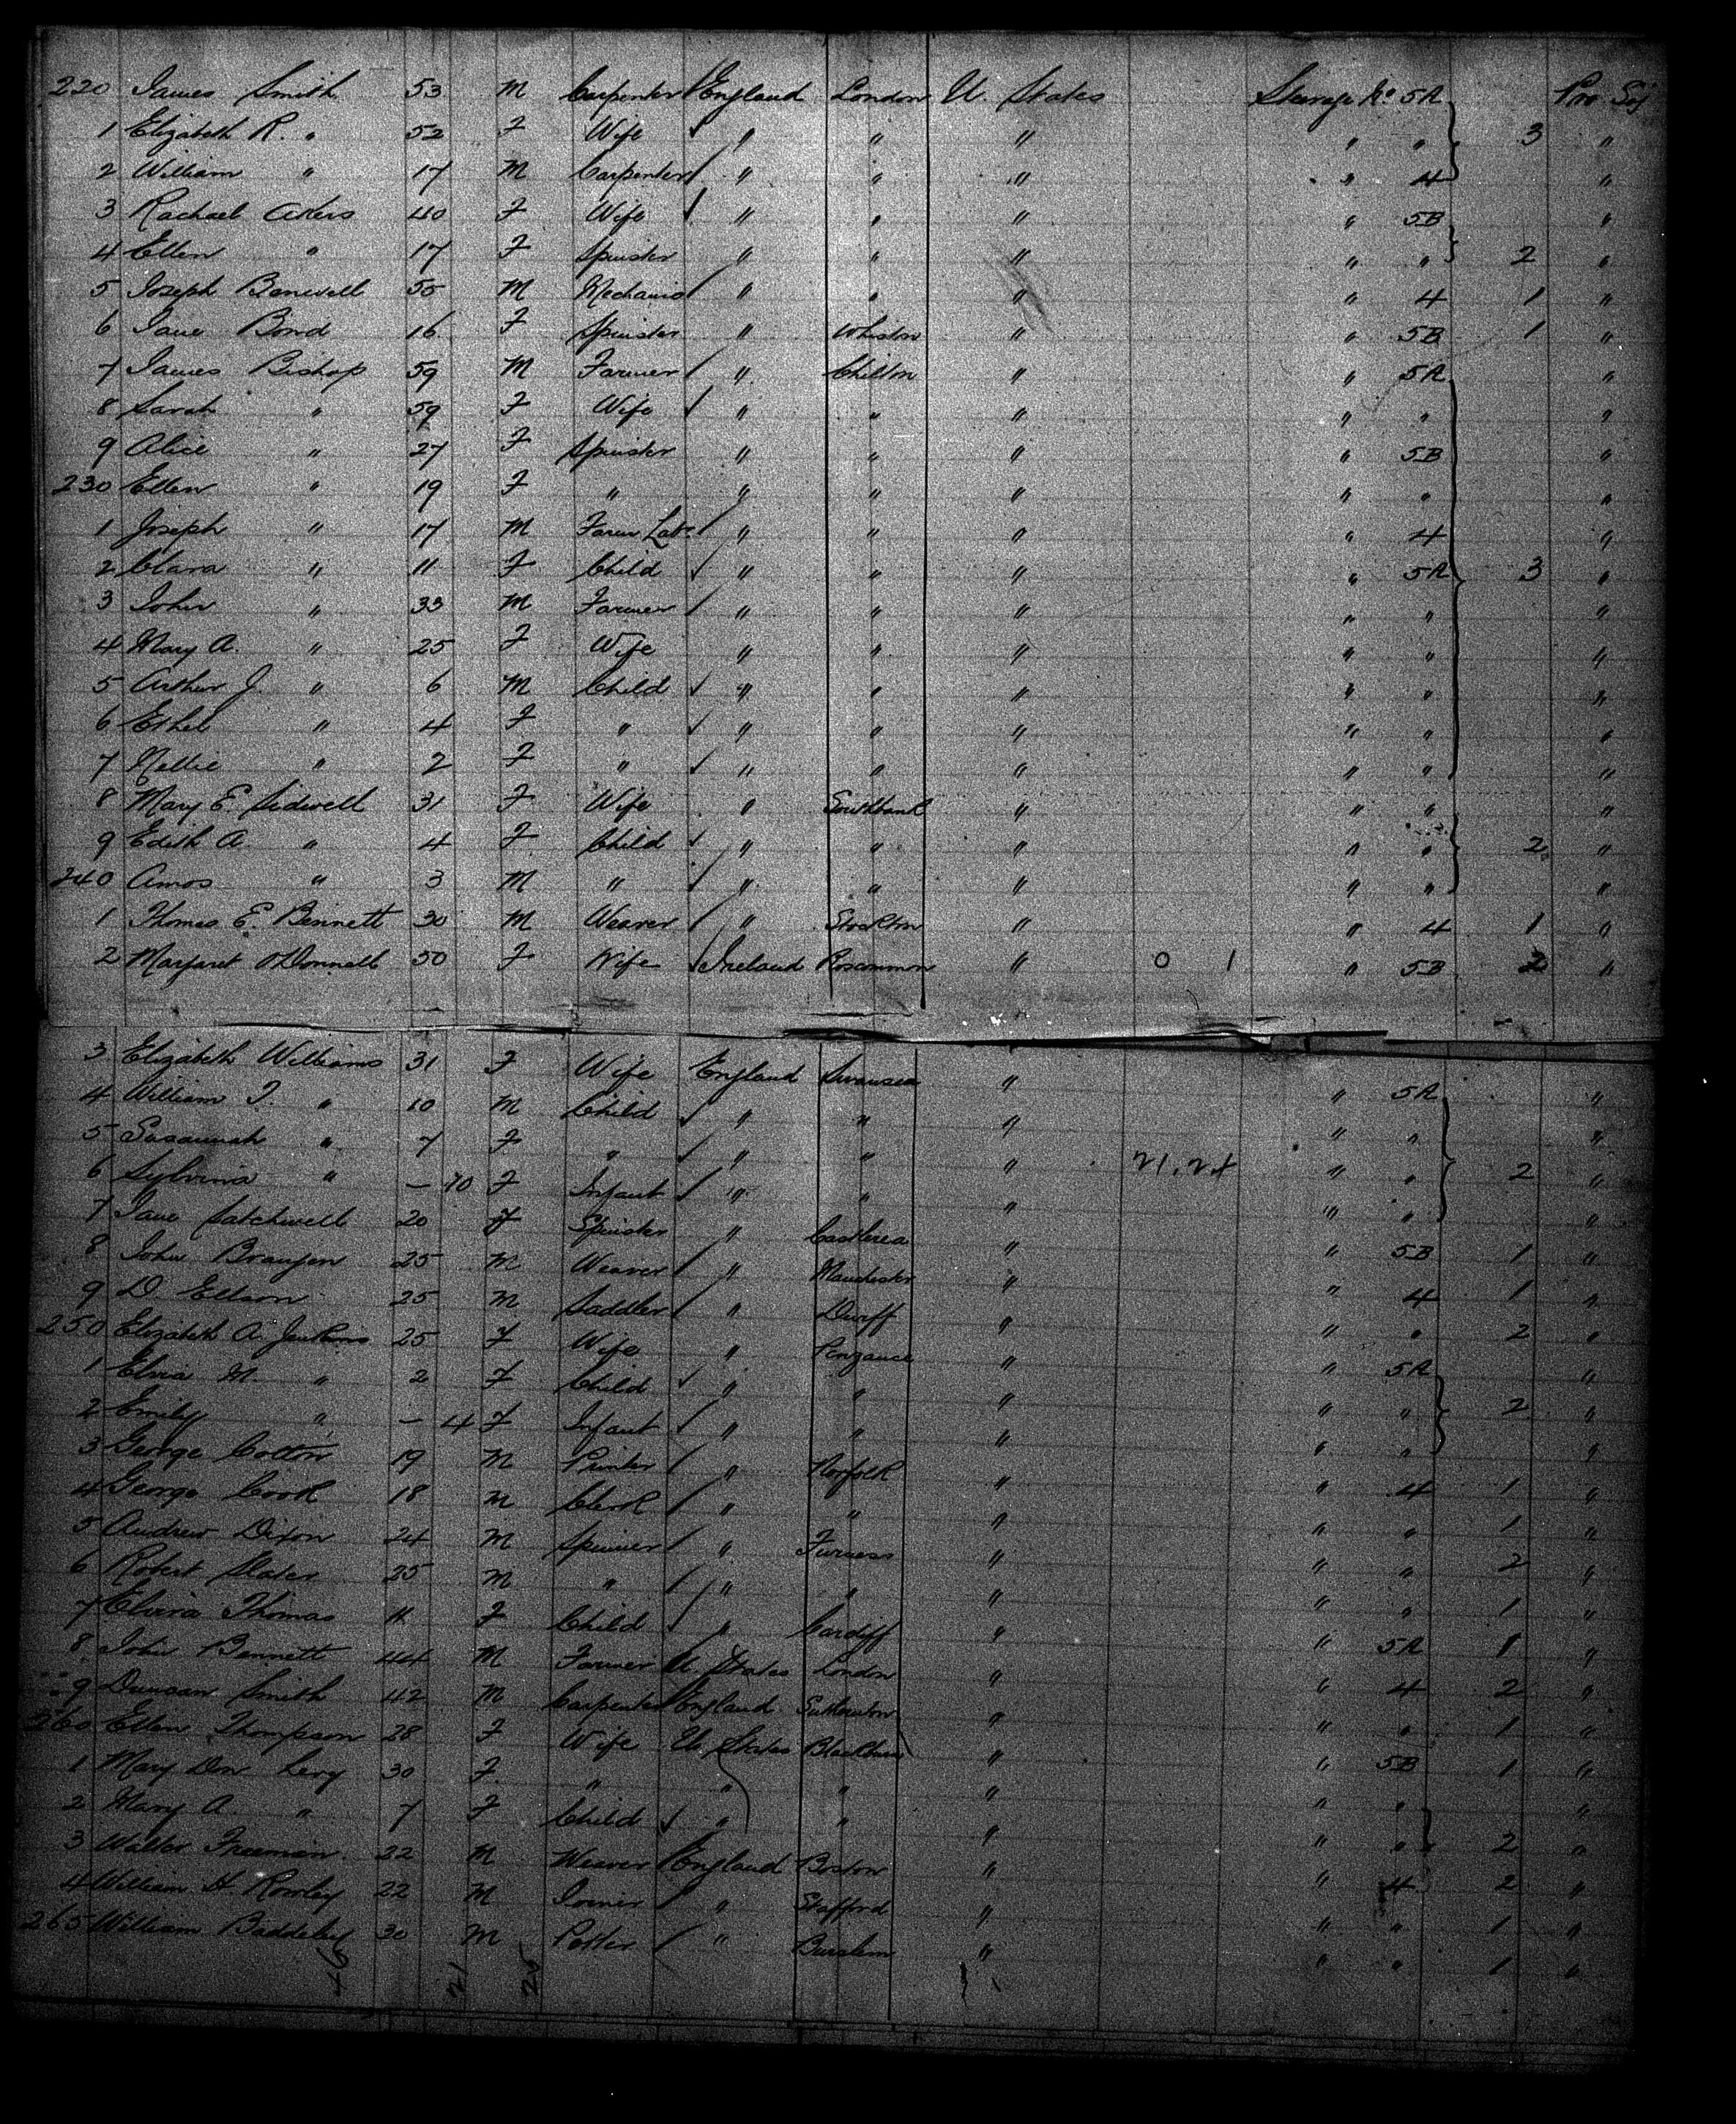 220 James Smith 53 M Carpenter England London U. States Steerage No 5A Pro Soj
1 Elizabeth R. " 52 F Wife " " " " " 3 "
2 William " 17 M Carpenter " " " " 4 "
3 Rachael Akers 40 F Wife " " " " 5B "
4 Ellen " 17 F Spinster " " " " " 2 "
5 Joseph 55 M Mechanic " " " " 4 1 "
6 Jane Bond 16 F Spinster " Whiston " " 5B 1 "
7 James Bishop 59 M Farmer " Chilton " " 5A "
8 Sarah " 59 F Wife " " " " " "
9 Alice " 27 F Spinster " " " " 5B "
230 Ellen " 19 F " " " " " " "
1 Joseph " 17 M Farm Labr " " " " 4 "
2 Clara " 11 F Child " " " " 5A 3 "
3 John " 33 M Farmer " " " " " "
4 Mary A. " 25 F Wife " " " " " "
5 Arthur J. " 6 M Child " " " " " "
6 Ethel " 4 F " " " " " " "
7 Nellie " 2 F " " " " " " "
8 Mary E. Sidwell 31 F Wife " Southbank " " " "
9 Edith A. " 4 F Child " " " " " 2 "
240 Amos " 3 M " " " " " " "
1 Thomas E. Bennett 30 M Weaver " Stockton " " 4 1 "
2 Margaret O'Donnell 50 F Wife Ireland Roscommon " 0 1 " 5B 2 "
3 Elizabeth Williams 31 F Wife England Swansea " " 5A "
4 William T. " 10 M Child " " " " " "
5 Susannah " 7 F " " " " 21.24 " " 2 "
6 Sylvina " – 10 F Infant " " " " " "
7 Jane Satchwell 20 F Spinster " Castlerea " " 5B 1 "
8 John 25 M Weaver " Manchester " " 4 1 "
9 D. Ellson 25 M Saddler " " " " 2 "
250 Elizabeth A. Jenkins 25 F Wife " Penzance " " 5A "
1 M. " 2 F Child " " " " " 2 "
2 Emily " – 4 F Infant " " " " " "
3 George Cotton 19 M Printer " Norfolk " " 4 1 "
4 George Cook 18 M Clerk " " " " " 1 "
5 Andrew Dixon 24 M Spinner " Furness " " " 2 "
6 Robert Slater 25 M " " " " " " 1 "
7 Elvira Thomas 11 F Child " Cardiff " " 5A 1 "
8 John Bennett 44 M Farmer U. States London " " 4 2 "
9 Duncan Smith 42 M Carpenter England " " " 1 "
260 Ellen Thompson 28 F Wife U. States Blackburn " " 5B 1 "
1 Mary Levy 30 F " " " " " " "
2 Mary A. " 7 F Child " " " " " 2 "
3 Walter Freeman 22 M Weaver England Boston " " 4 2 "
4 William H. Rowley 22 M Joiner " Stafford " " " 1 "
265 William Baddeley 30 M Potter " Burslem " " " 1 "
21 25